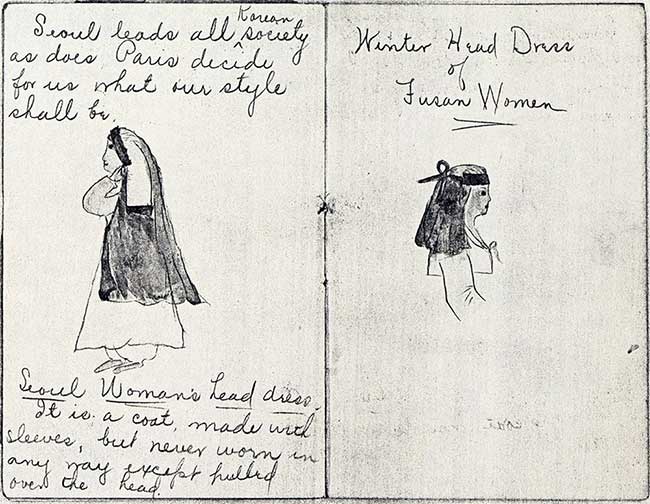 Seoul leads all Korean society
as does Paris decide
for us what our style
shall be.
Seoul Woman's head dress.
It is a coat, made with
sleeves, but never worn in
any way except pulled
over the head.
Winter Head Dress
of
Fusan Women